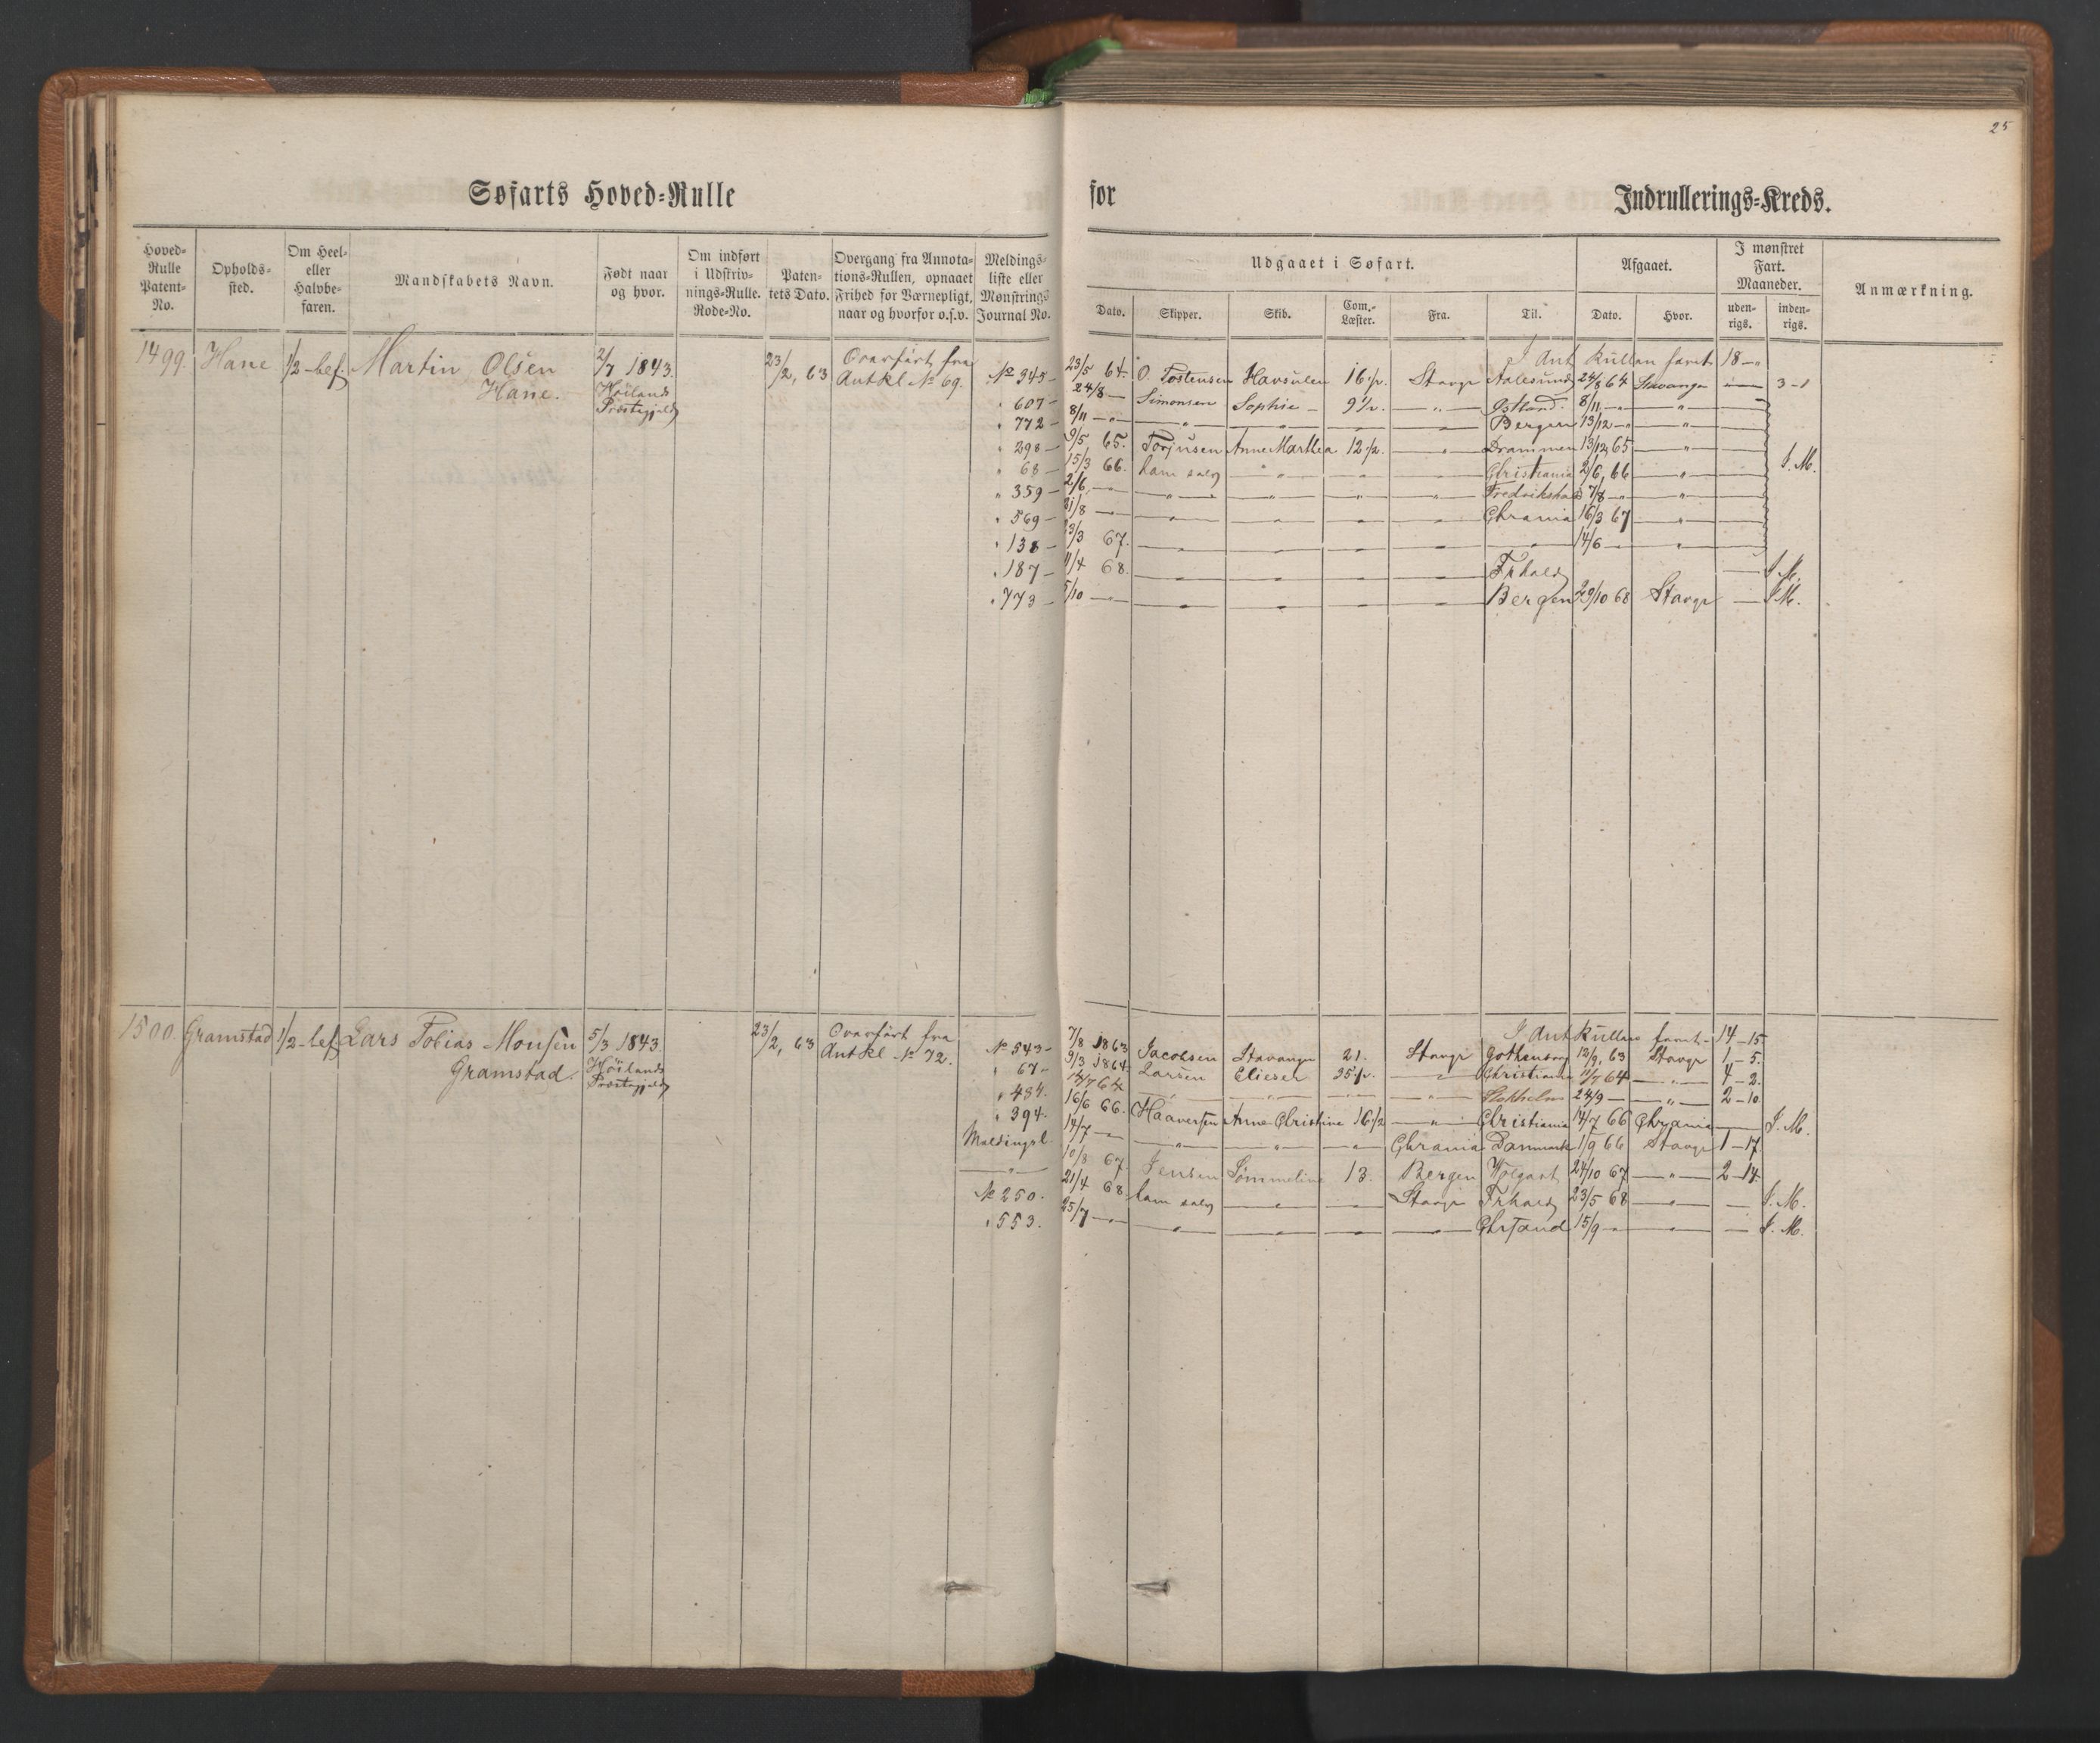 25
Søfarts Hoved-Rulle for Indrullerings-Kreds.
Hoved-Rulle Patent-No.
Opholds-sted.
Om Heel- eller Halvbe-faren.
Mandskabets Navn.
Født naar og hvor.
Om indført i Udskriv-nings-Rulle. Rode-No.
Paten-tets Dato.
Overgang fra Annota-tions-Rullen, opnaaet Frihed for Værnepligt, naar og hvorfor o.s.v.
Meldings-liste eller Mønstrings Journal No.
Udgaaet i Søfart.
Afgaaet.
I mønstret Fart. Maaneder.
Anmærkning.
Dato. Skipper. Skib. Com.-Læster. Fra. Til. Dato. Hvor. uden-rigs. inden-rigs.
1499. Hane 1/2-bef. Martin Olsen Hane. 2/7 1843. Höilands Præstegjeld 23/2, 63 Overført fra Antkl No 69.
I Ant Rullen faret 18 - "
No 345 - 23/5 64. O. Tostensen Havsulen 16 1/2. Stavgr Aalesund 24/8 64 Stavanger 3-1
" 607 - 24/8 — Simonsen Sophie - 9 1/2. — " — Østland. 8/11 — " — " —
" 772 - 8/11 — " — " — Bergen 13/12 — " — " —
" 298 - 9/5 65. Torjusen Anne Marthea 12 1/2. — " — Drammen 13/12 65 — " —
" 68 - 15/3 66. ham selv — " — Christiania 2/6, 66 — " — I. M.
" 359 - 2/6 — " — " — " — Fredrikshald 7/8 — " — " —
" 569 - 31/8 — " — " — Chrania 16/3 67 — " —
" 138 - 23/3 67. — " — " — 14/6 — " — " —
" 187 - 11/4 68. — " — " — Frhald — I. M.
" 773 - 5/10 — " — " — Bergen 29/10 68 Stavgr — I. M.
1500. Gramstad 1/2-bef. Lars Tobias Monsen Gramstad. 5/3 1843. Höilands Præstegjeld 23/2, 63 Overført fra Antkl No 72.
I Ant Rullen faret - 14-15
No 543 - 7/8 1863 Jacobsen Stavanger 21. Stavgr Gothenborg 12/9, 63 Stavgr 1-5.
" 67 - 9/3 1864. Larsen Elieser 35 1/2. — " — Christiania 11/7 64 — " — 4-2.
" 484. 14/7 64 — " — " — Stokholm 24/9 — " — 2-10
" 394. 16/6 66. Haaversen Anne Christine 16 1/2 — " — Christiania 14/7 66 Chrania — I. M.
Meldingsl. 14/7 — " — " — Chrania Danmark 1/9 66 Stavgr 1-17.
— " — 10/8 67. Jensen Sømmeline 13. Bergen Wolgast 24/10 67 — " — 2-14.
No 250. 21/4 68 ham selv — " — Stavgr Frhald 23/5 68 — " — I. M.
" 553. 25/7 — " — " — Chrsand 15/9 — " — " — I. M.